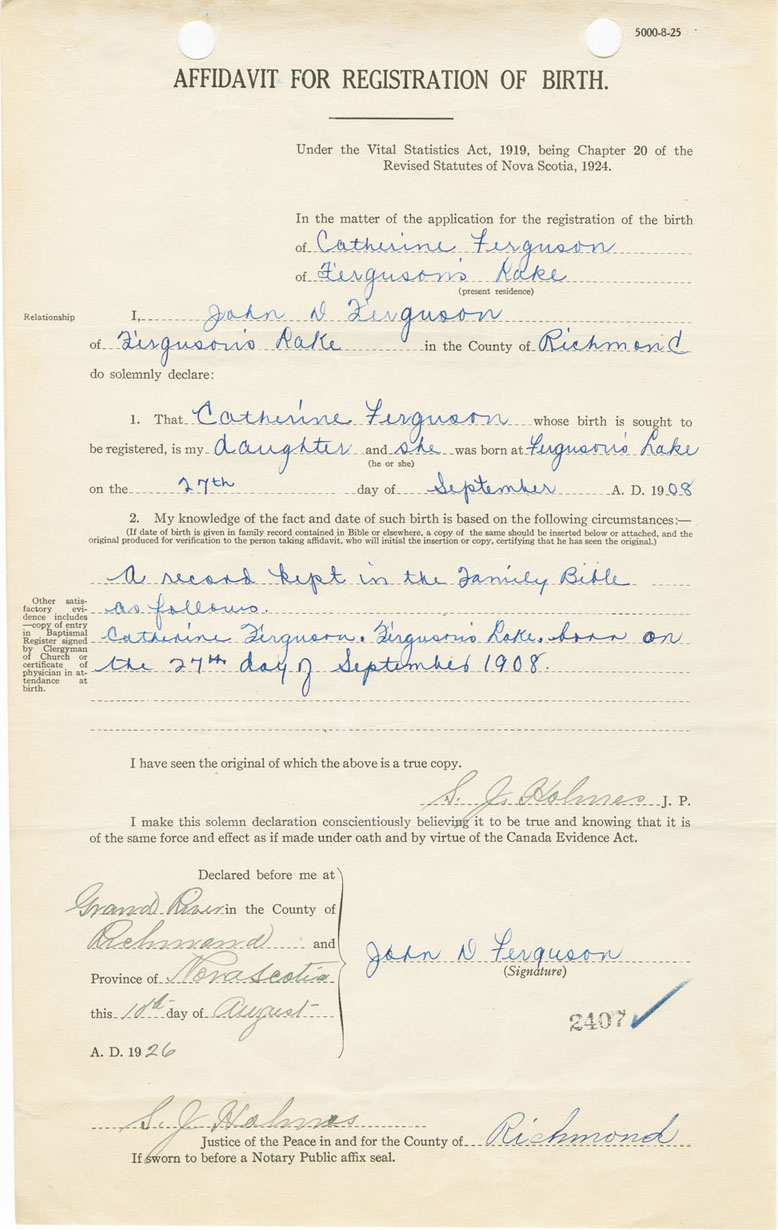 5000-8-25
AFFIDAVIT FOR REGISTRATION OF BIRTH.
Under the Vital Statistics Act, 1919, being Chapter 20 of the
Revised Statutes of Nova Scotia, 1924.
In the matter of the application for the registration of the birth
of Catherine Ferguson
of Ferguson's Lake
(present residence)
Relationship
I, John D Ferguson
of Ferguson's Lake in the County of Richmond
do solemnly declare:
1. That Catherine Ferguson whose birth is sought to
be registered, is my daughter and she was born at Ferguson's Lake
(he or she)
on the 27th day of September A. D. 1908
2. My knowledge of the fact and date of such birth is based on the following circumstances:—
(If date of birth is given in family record contained in Bible or elsewhere, a copy of the same should be inserted below or attached, and the
original produced for verification to the person taking affidavit, who will initial the insertion or copy, certifying that he has seen the original.)
A record kept in the Family Bible
as follows.
Catherine Ferguson. Ferguson's Lake. born on
the 27th day of September 1908.
Other satis-
factory evi-
dence includes
—copy of entry
in Baptismal
Register signed
by Clergyman
of Church or
certificate of
physician in at-
tendance at
birth.
I have seen the original of which the above is a true copy.
S. J. Holmes J. P.
I make this solemn declaration conscientiously believing it to be true and knowing that it is
of the same force and effect as if made under oath and by virtue of the Canada Evidence Act.
Declared before me at
Grand River in the County of
Richmond and
Province of Nova Scotia
this 10th day of August
A. D. 1926
John D Ferguson
(Signature)
2407
S. J. Holmes
Justice of the Peace in and for the County of Richmond
If sworn to before a Notary Public affix seal.